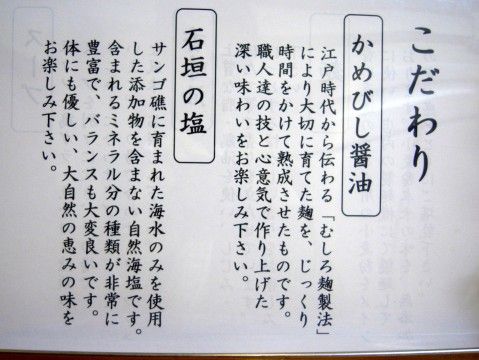 こだわり
かめびし醤油
江戸時代から伝わる「むしろ麹製法」
により大切に育てた麹を、じっくり
時間をかけて熟成させたものです。
職人達の技と心意気で作り上げた
深い味わいをお楽しみ下さい。
石垣の塩
サンゴ礁に育まれた海水のみを使用
した添加物を含まない自然海塩です。
含まれるミネラル分の種類が非常に
豊富で、バランスも大変良いです。
体にも優しい、大自然の恵みの味を
お楽しみ下さい。